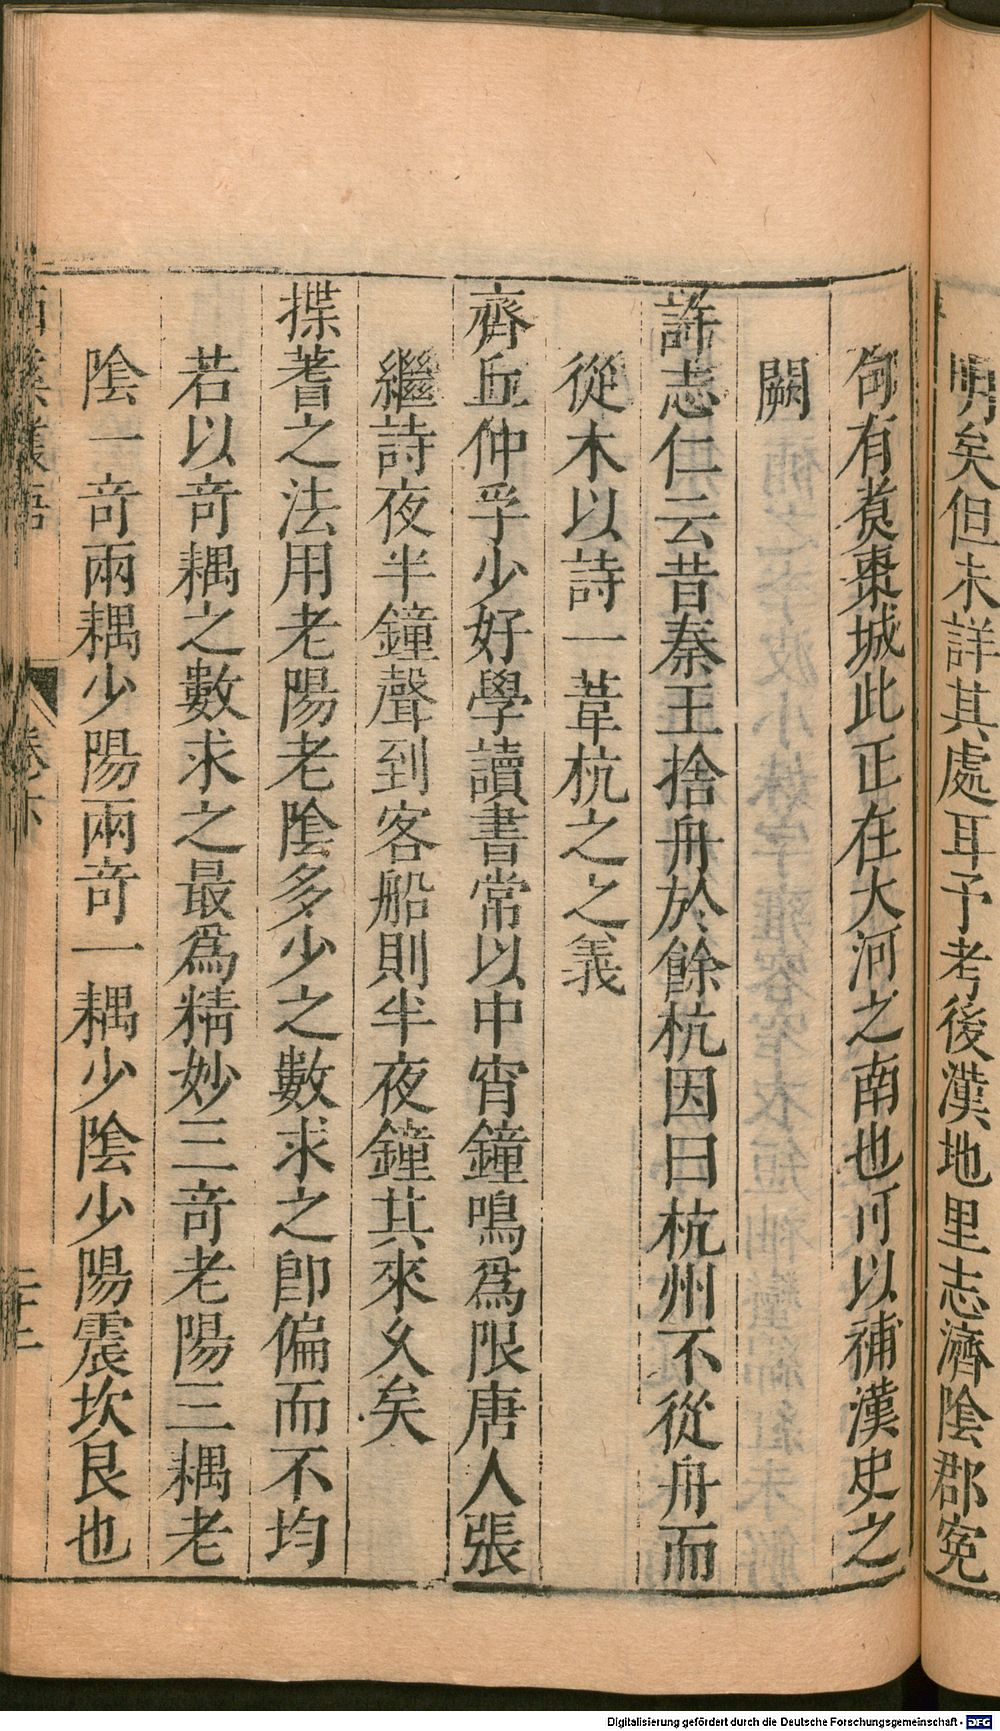 明矣但未詳其處耳予考後漢地里志濟陰郡寃
句有煑棗城此正在大河之南也可以補漢史之
闕
許志仁云昔秦王捨舟於餘杭因曰杭州不從舟而
從木以詩一葦杭之之義
齊丘仲孚少好學讀書常以中宵鐘鳴爲限唐人張
繼詩夜半鐘聲到客船則半夜鐘其來乆矣
揲蓍之法用老陽老陰多少之數求之卽偏而不均
若以奇耦之數求之最爲精妙三奇老陽三耦老
陰一奇兩耦少陽兩奇一耦少陰少陽震坎艮也
西溪叢語
卷下
Digitalisierung gefördert durch die Deutsche Forschungsgemeinschaft - DFG